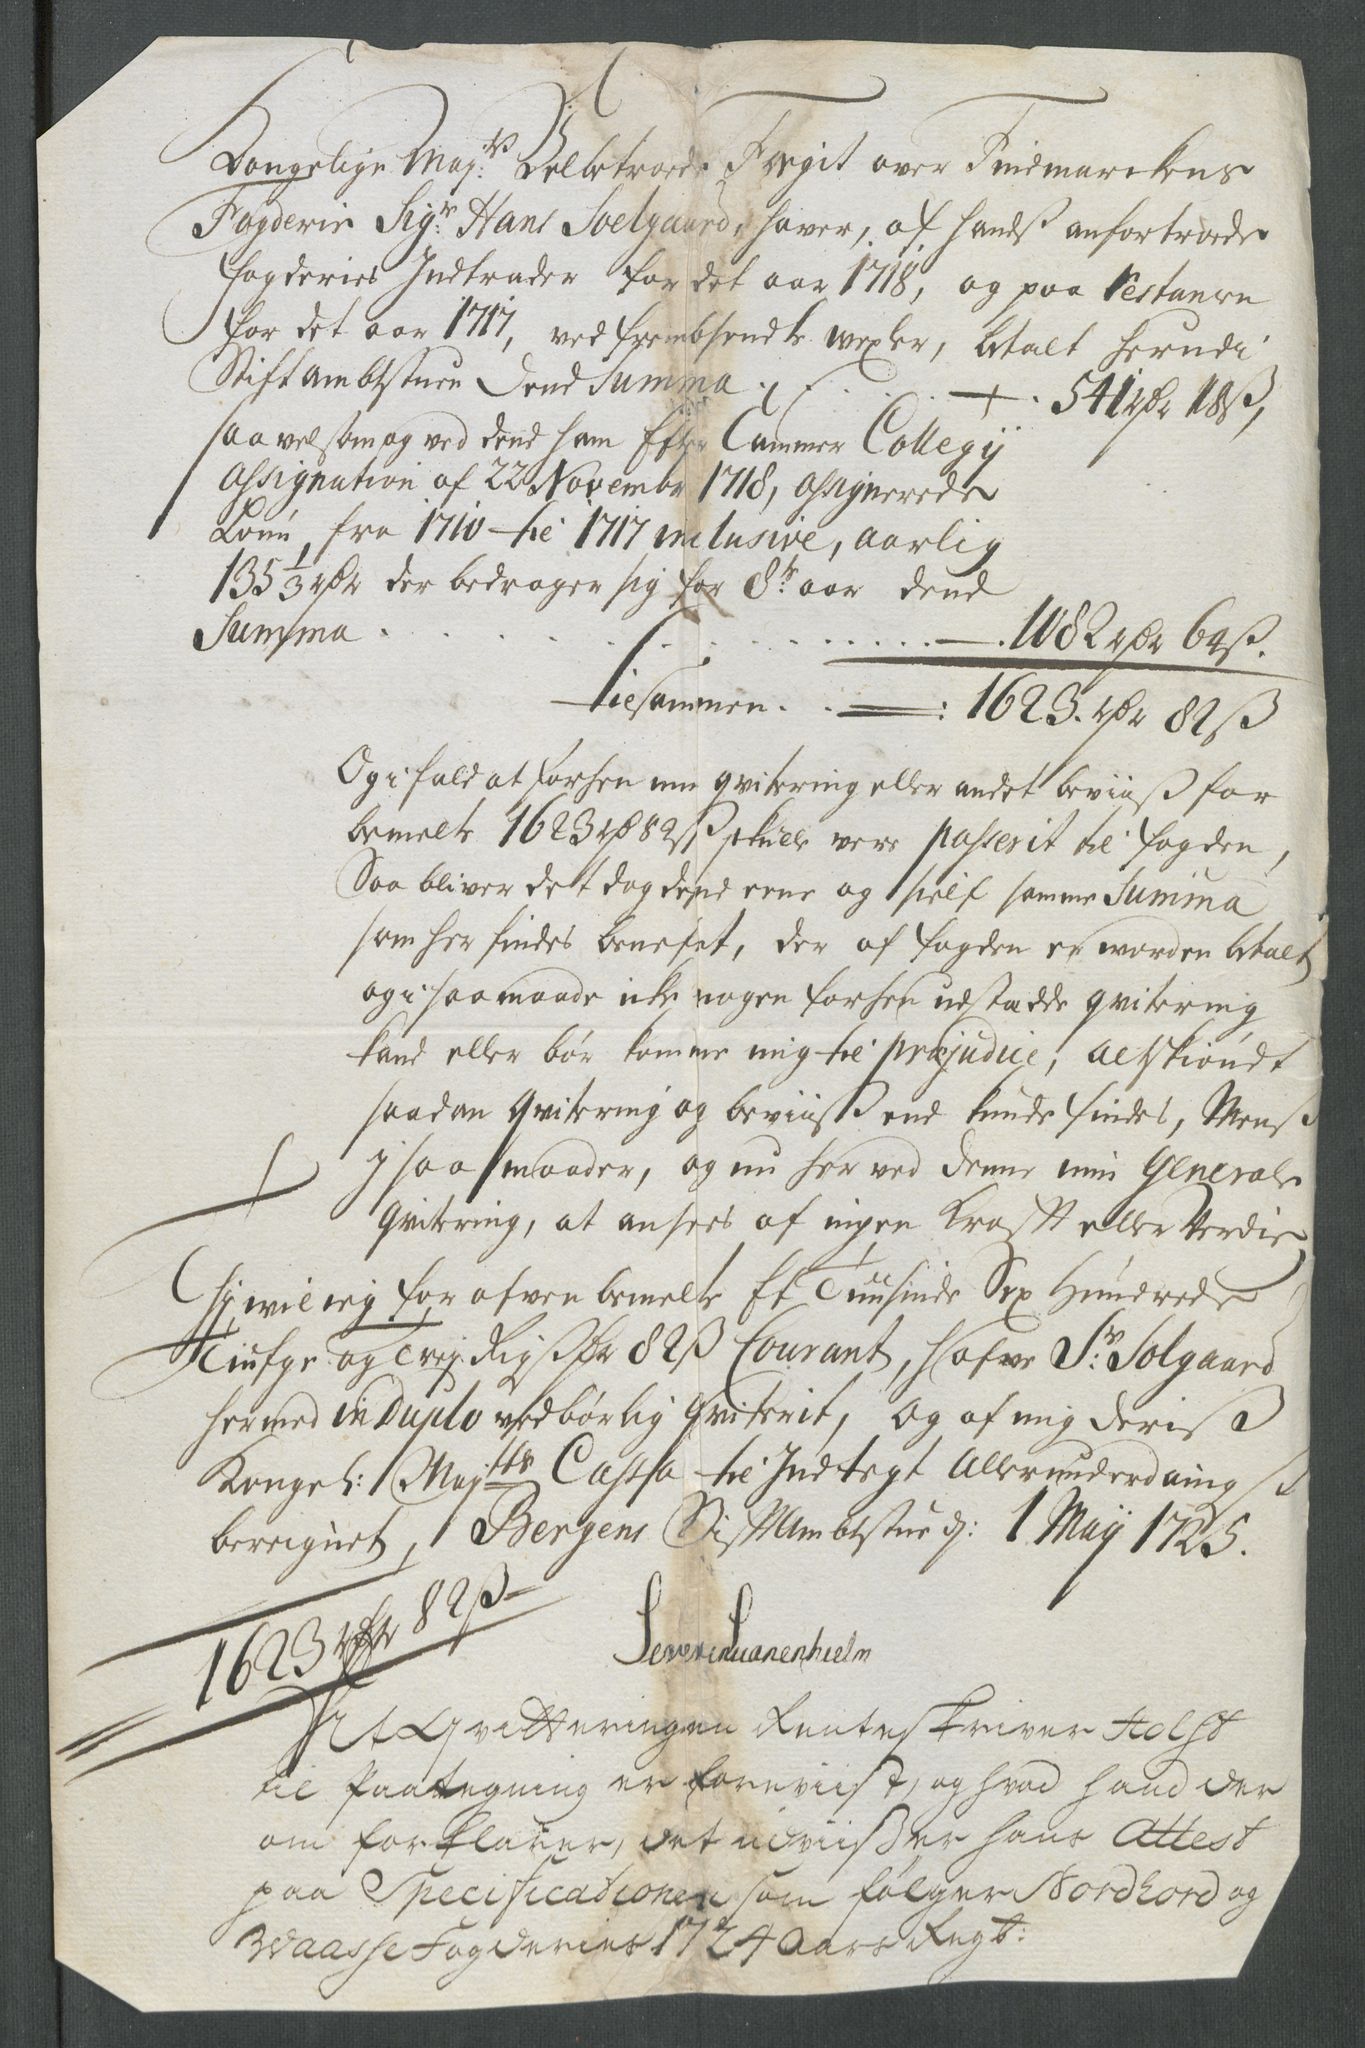 Kongelige Maj:ts Velbetroede Fogit over Findmarckens
Fogderie Sig:r Hans Soelgaard, haver, af hands anfortroede
fogderies Indtrader for det aar 1718, og paa Restancen
for det aar 1717, ved frembsendte wexler, betalt herudi
Stiftambtstuen dend Summa . . . 541 rdr 18 ß,
saavelsom og ved dend ham Efter Cammer Collegij
Assignation af 22 Novembr 1718, assignerede
Lønn, fra 1710 til 1717 inclusive, aarlig
135 1/3 rdr der bedrager sig for 8:te aar dend
Summa . . . . . . 1082 rdr 64 ß.
tilsammen . . : 1623. rdr 82 ß
Og i fald at forhen min qvitering eller andet beviiß for
bemelte 1623 rd 82 ß skulle vere passerit til fogden,
Saa bliver det dog dend eene og self samme Summa
som her findes benefnt, der af fogden er worden betalt
og i saa maade icke nogen forhen udstædde qvitering
kand eller bør komme mig til præjudice, alt skiøndt
saadan qvitering og beviiß end kunde findes, Mens
J saa maader, og nu her ved denne min Generale
qvitering, at ansees af ingen Krafft eller Verdie,
Thj wil ieg for ofven bemelte Et Tuusinde Sex Hundrede
Tiufge og Trej Rigsdr 82 ß Courant, hafve Sr: Solgaard
hermed in Duplo vedbørlig qviterit, og af mig deris
Kongel: Maj:tts Cassa til Indtegt Allerunderdanigst
beregnet, Bergens Stiftambtstue d: 1 Maij 1725.
1623 rdr 82 ß
Severin Suanenhielm
At Qvitteringen Renteskriver Holst
til Paategning er foreviist, og hvad hand der
om forklarer, det udviißer hans Attest
paa Specificationen som følger Nordhord og
Waasse Fogderies 1724 Aars Regt: